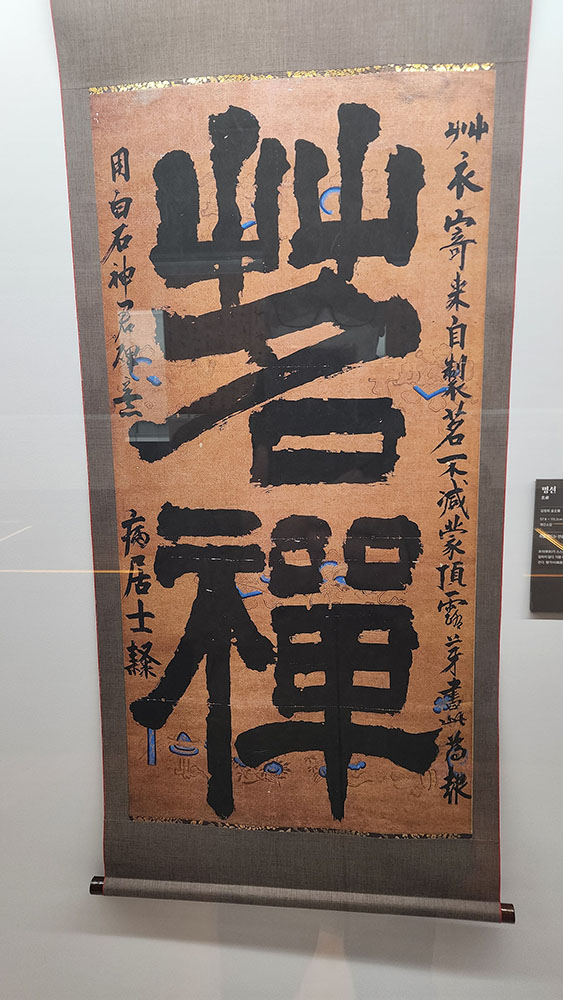 艸衣寄來自製茗不減蒙頂露芽書此為報
茗禪
用白石神君碑意
病居士隸
명선
茗禪